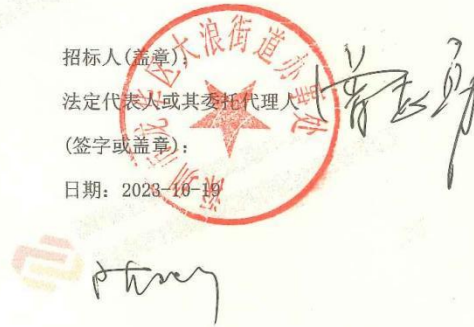 招标人(盖章):
法定代表人或其委托代理人
(签字或盖章):
日期: 2023-10-19
深圳市龙华区大浪街道办事处